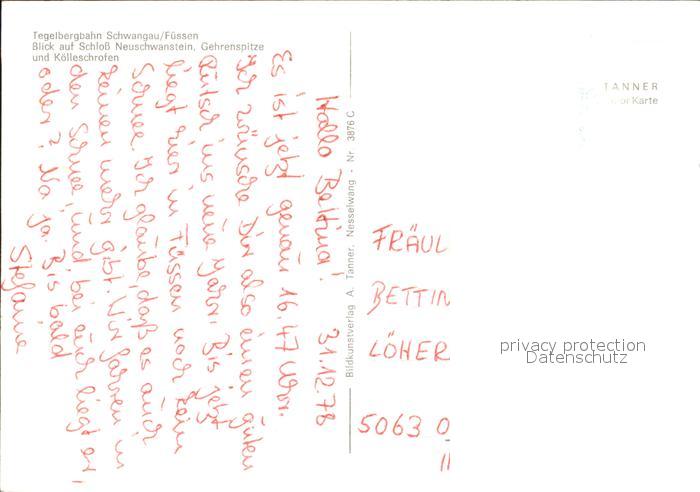 Tegelbergbahn Schwangau/Füssen
Blick auf Schloß Neuschwanstein, Gehrenspitze
und Kölleschrofen
Hallo Bettina! 31.12.78
Es ist jetzt genau 16.47 Uhr.
Ich wünsche Dir also einen guten
Rutsch ins neue Jahr. Bis jetzt
liegt hier in Füssen noch kein
Schnee. Ich glaube, daß es auch
keinen mehr gibt. Wir fahren in
den Schnee, und bei euch liegt er,
oder? Na ja. Bis bald
Stefanie
Bildkunstverlag A. Tanner, Nesselwang - Nr. 3876 C
TANNER
Karte
FRÄUL
BETTIN
LÖHER
5063 O
privacy protection
Datenschutz